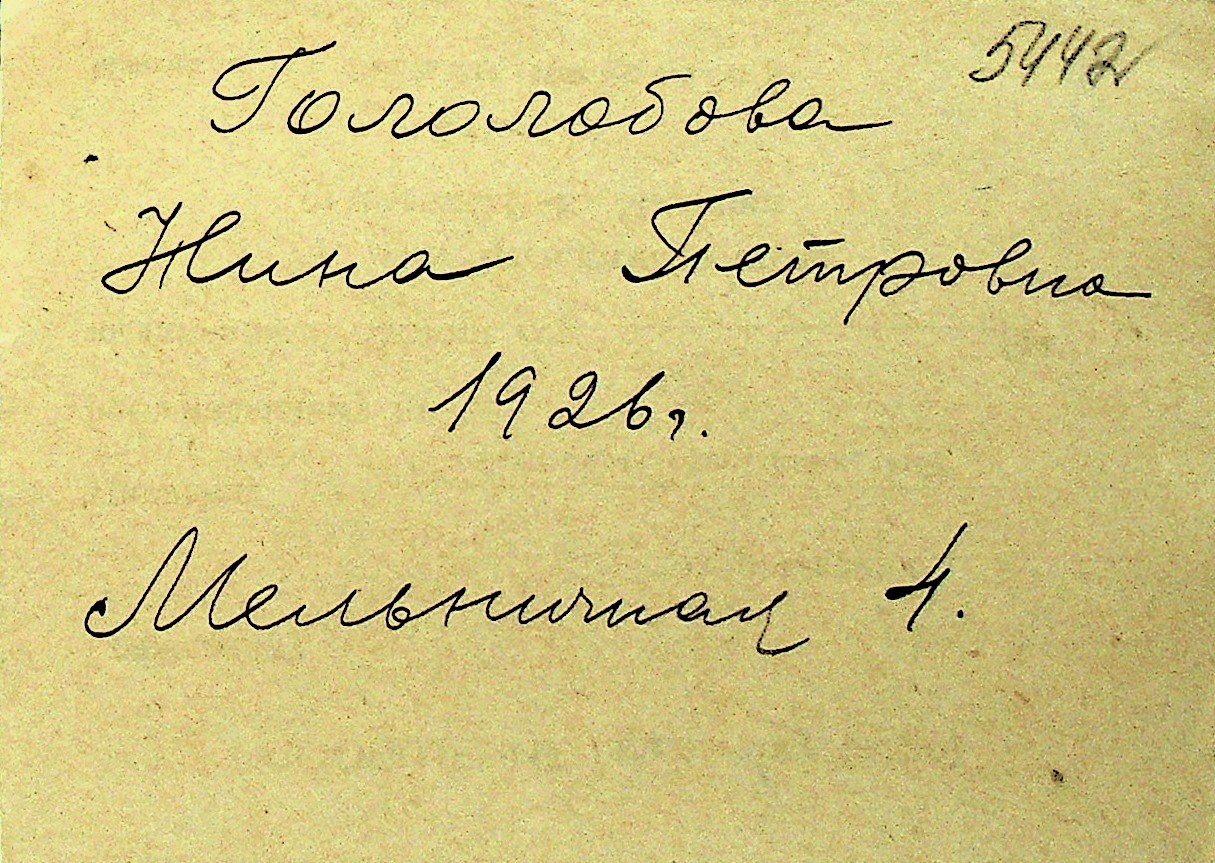 5442
Гололобова
Нина Петровна
1926г.
Мельничная 4.